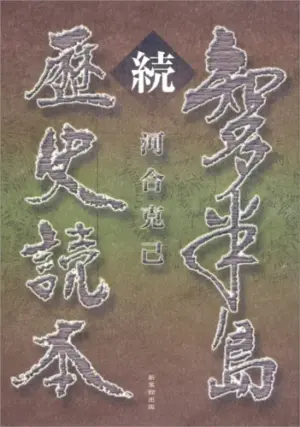 知多半島
続
河合克己
歴史読本
新葉館出版